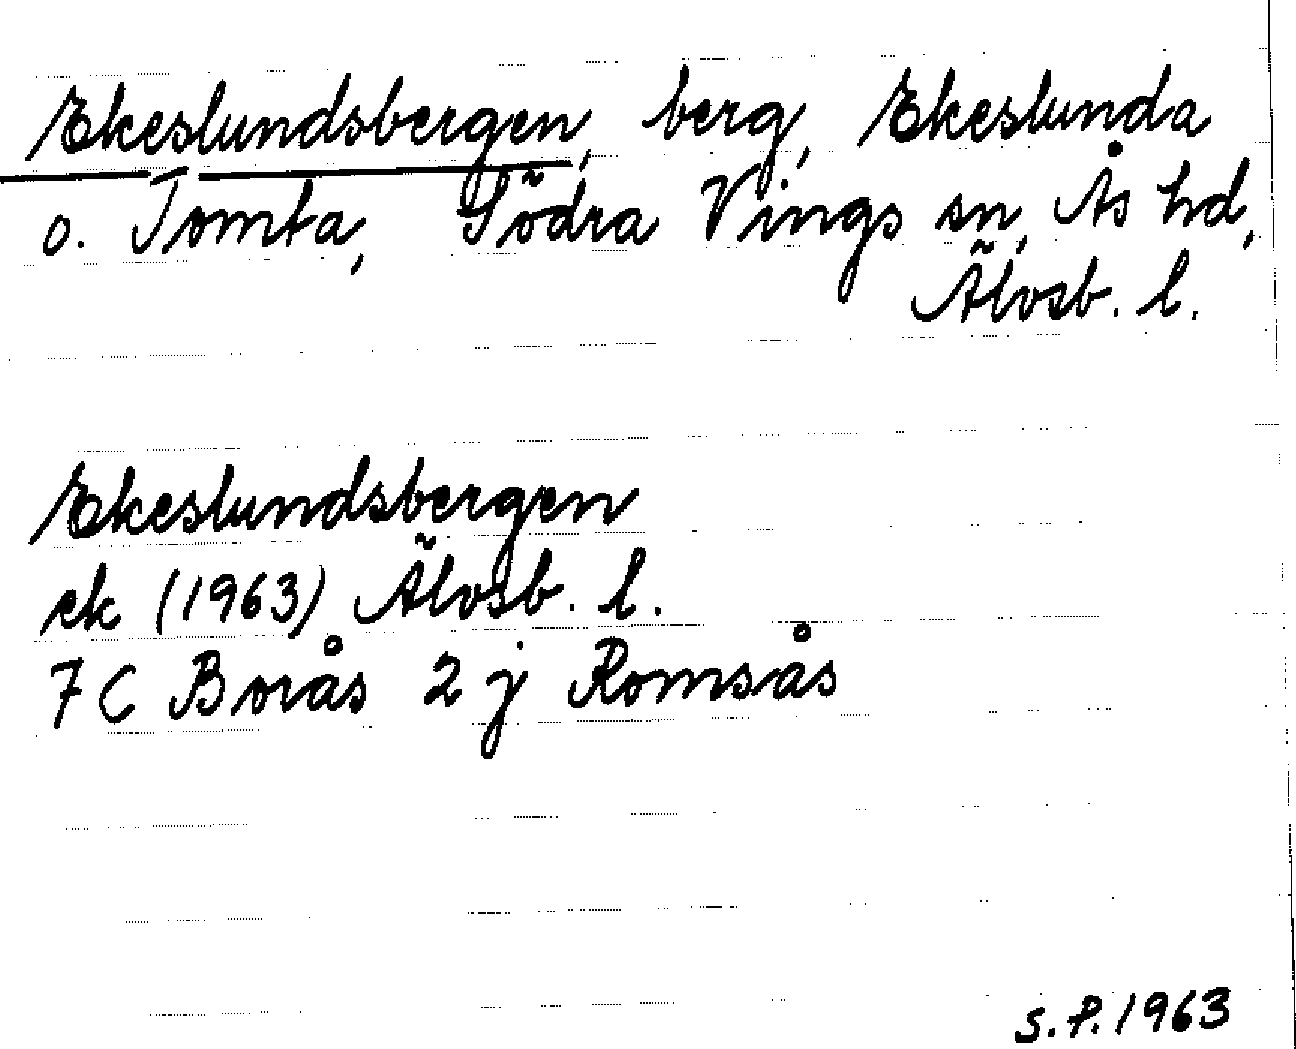 Ekeslundsbergen, berg, Ekeslunda
o. Tomta, Södra Vings sn, Ås hd,
Älvsb. l.
Ekeslundsbergen
ek (1963) Älvsb. l.
7 C Borås 2 j Romsås
S.P. 1963